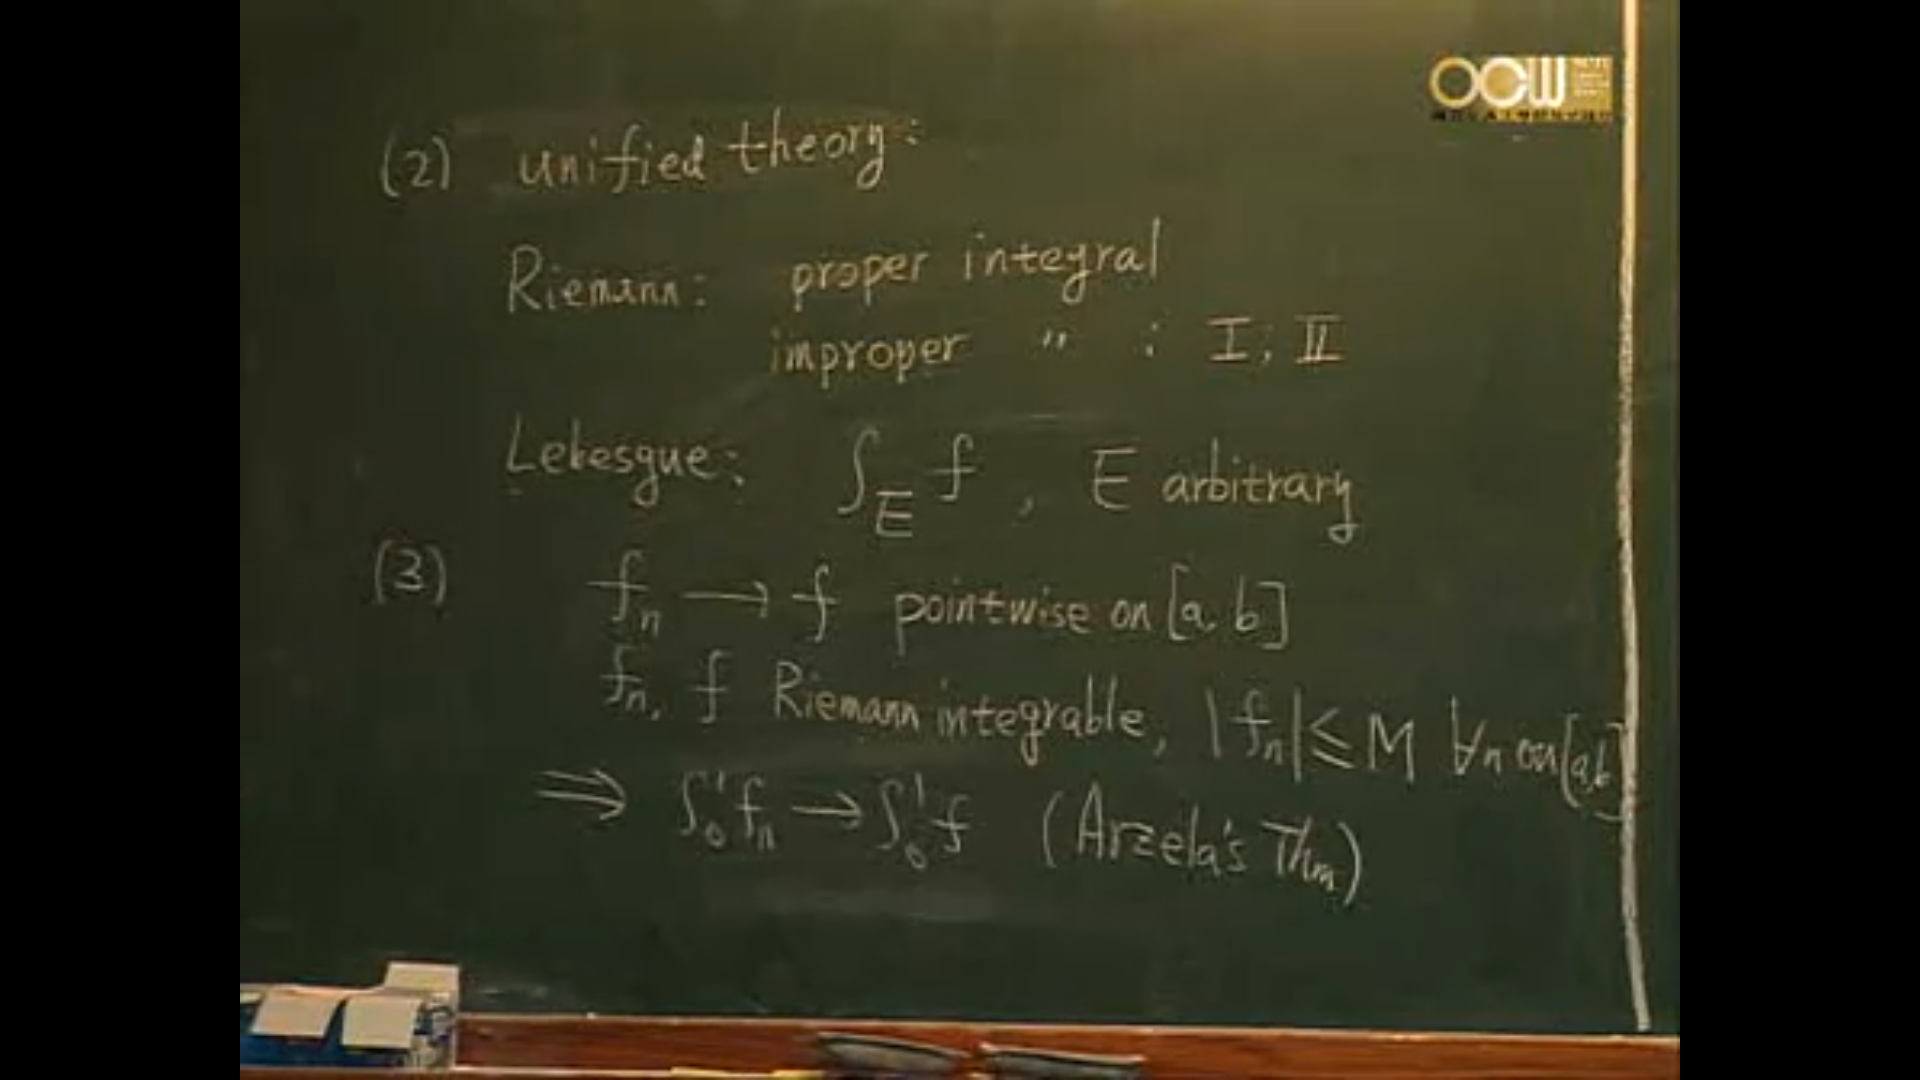 OCW
(2) unified theory:
Riemann: proper integral
improper " : I, II
Lebesgue: ∫_E f , E arbitrary
(3) f_n → f pointwise on [a, b]
f_n, f Riemann integrable, |f_n| ≤ M ∀n on [a,b]
⇒ ∫₀¹ f_n → ∫₀¹ f (Arzela's Thm)